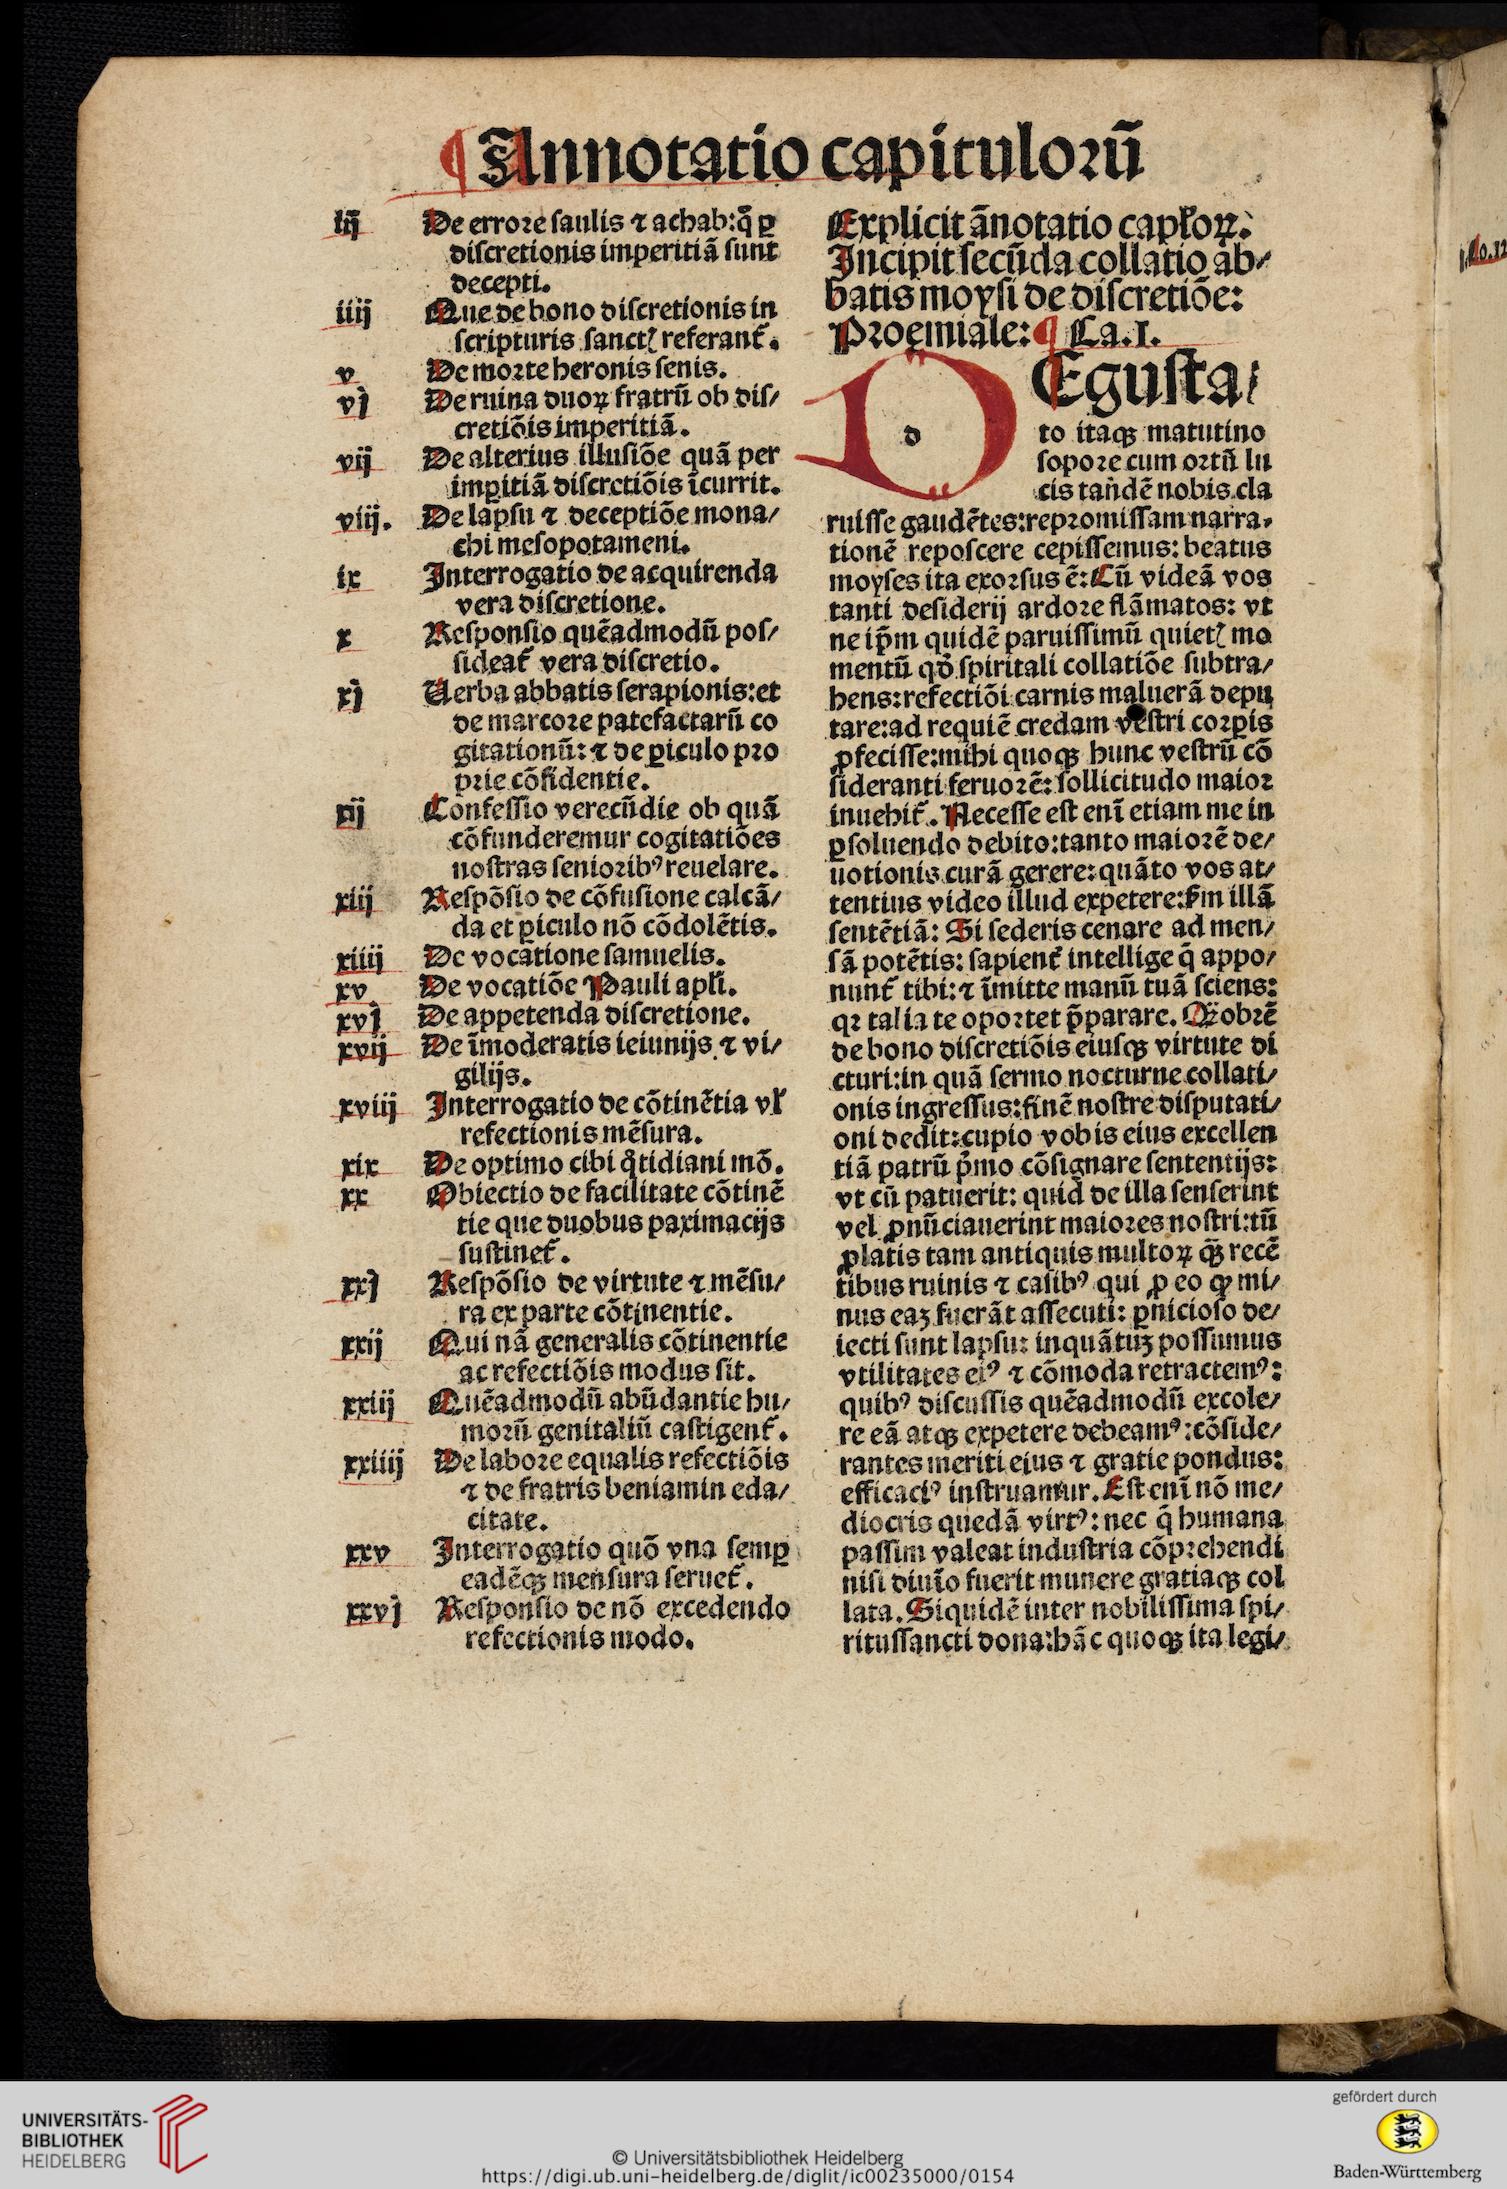 ¶ Annotatio capitulorū
iij De errore ſaulis ⁊ achab: q̄ ꝑ
diſcretionis imperitiā ſunt
decepti.
iiij Que de bono diſcretionis in
ſcripturis ſanctꝭ referant̄.
v De morte heronis ſenis.
vj De ruina duoꝝ fratrū ob diſ/
cretiōis imperitiā.
vij De alterius illuſiōe quā per
imꝑitiā diſcretiōis īcurrit.
viij. De lapſu ⁊ deceptiōe mona/
chi meſopotameni.
ix Interrogatio de acquirenda
vera diſcretione.
x Reſponſio quēadmodū poſ/
ſideat̄ vera diſcretio.
xj Uerba abbatis ſerapionis: et
de marcore patefactarū co
gitationū: ⁊ de ꝑiculo pro
prie cōfidentie.
xij Confeſſio verecūdie ob quā
cōfunderemur cogitatiōes
noſtras ſenioribꝰ reuelare.
xiij Reſpōſio de cōfuſione calcā/
da et ꝑiculo nō cōdolētis.
xiiij De vocatione ſamuelis.
xv De vocatiōe Pauli apłi.
xvj De appetenda diſcretione.
xvij De īmoderatis ieiunijs ⁊ vi/
gilijs.
xviij Interrogatio de cōtinētia vł
refectionis mēſura.
xix De optimo cibi q̄tidiani mō.
xx Obiectio de facilitate cōtinē
tie que duobus paximacijs
ſuſtinet̄.
xxj Reſpōſio de virtute ⁊ mēſu/
ra ex parte cōtinentie.
xxij Qui nā generalis cōtinentie
ac refectiōis modus ſit.
xxiij Quēadmodū abūdantie hu/
morū genitaliū caſtigent̄.
xxiiij De labore equalis refectiōis
⁊ de fratris beniamin eda/
citate.
xxv Interrogatio quō vna ſemꝑ
eadēqꝫ menſura ſeruet̄.
xxvj Reſponſio de nō excedendo
refectionis modo.
Explicit ānotatio capłoꝝ.
Incipit ſecūda collatio ab/
batis moyſi de diſcretiōe:
Proęmiale: ¶ Ca.I.
d Eguſta/
to itaqꝫ matutino
ſopore cum ortū lu
cis tandē nobis cla
ruiſſe gaudētes: repromiſſam narra/
tionē repoſcere cepiſſemus: beatus
moyſes ita exorſus ē: Cū videā vos
tanti deſiderij ardore flāmatos: vt
ne ip̄m quidē paruiſſimū quietꝭ mo
mentū qd̄ ſpiritali collatiōe ſubtra/
hens: refectiōi carnis maluerā depu
tare: ad requiē credam veſtri corꝑis
ꝓfeciſſe: mihi quoqꝫ hunc veſtrū cō
ſideranti feruorē: ſollicitudo maior
inuehit̄. Neceſſe eſt enī etiam me in
ꝑſoluendo debito: tanto maiorē de/
uotionis curā gerere: quāto vos at/
tentius video illud expetere: ẜm illā
ſentētiā: Si ſederis cenare ad men/
ſā potētis: ſapient̄ intellige q̄ appo/
nunt̄ tibi: ⁊ īmitte manū tuā ſciens:
qr talia te oportet p̄parare. Qōobrē
de bono diſcretiōis eiuſqꝫ virtute di
cturi: in quā ſermo nocturne collati/
onis ingreſſus: finē noſtre diſputati/
oni dedit: cupio vobis eius excellen
tiā patrū p̄mo cōſignare ſententijs:
vt cū patuerit: quid de illa ſenſerint
vel ꝓnūciauerint maiores noſtri: tū
ꝓlatis tam antiquis multoꝝ qꝫ̄ recē
tibus ruinis ⁊ caſibꝰ qui ꝓ eo ꝙ mi/
nus eaꝫ fuerāt aſſecuti: ꝑnicioſo de/
iecti ſunt lapſu: inquātuꝫ poſſumus
vtilitates eiꝰ ⁊ cōmoda retractemꝰ:
quibꝰ diſcuſſis quēadmodū excole/
re eā atqꝫ expetere debeamꝰ: cōſide/
rantes meriti eius ⁊ gratie pondus:
efficaciꝰ inſtruamur. Eſt enī nō me/
diocris quedā virtꝰ: nec q̄ humana
paſſim valeat induſtria cōprehendi
niſi diuīo fuerit munere gratiaqꝫ col
lata. Siquidē inter nobiliſſima ſpi/
rituſſancti dona: hāc quoqꝫ ita legi/
UNIVERSITÄTS-
BIBLIOTHEK
HEIDELBERG
© Universitätsbibliothek Heidelberg
https://digi.ub.uni-heidelberg.de/diglit/ic00235000/0154
gefördert durch
Baden-Württemberg